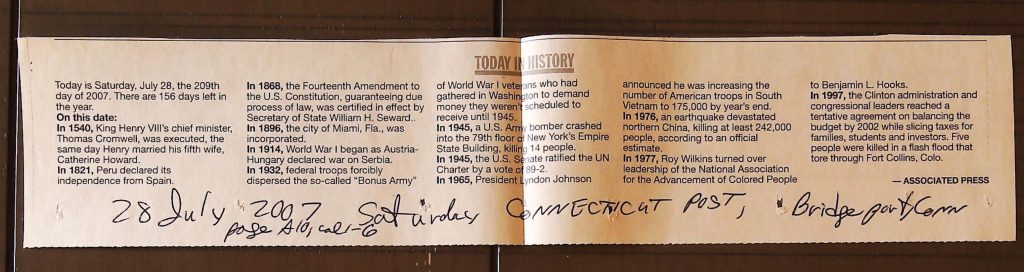 TODAY IN HISTORY
Today is Saturday, July 28, the 209th
day of 2007. There are 156 days left in
the year.
On this date:
In 1540, King Henry VIII's chief minister,
Thomas Cromwell, was executed, the
same day Henry married his fifth wife,
Catherine Howard.
In 1821, Peru declared its
independence from Spain.
In 1868, the Fourteenth Amendment to
the U.S. Constitution, guaranteeing due
process of law, was certified in effect by
Secretary of State William H. Seward..
In 1896, the city of Miami, Fla., was
incorporated.
In 1914, World War I began as Austria-
Hungary declared war on Serbia.
In 1932, federal troops forcibly
dispersed the so-called "Bonus Army"
of World War I veterans who had
gathered in Washington to demand
money they weren't scheduled to
receive until 1945.
In 1945, a U.S. Army bomber crashed
into the 79th floor of New York's Empire
State Building, killing 14 people.
In 1945, the U.S. Senate ratified the UN
Charter by a vote of 89-2.
In 1965, President Lyndon Johnson
announced he was increasing the
number of American troops in South
Vietnam to 175,000 by year's end.
In 1976, an earthquake devastated
northern China, killing at least 242,000
people, according to an official
estimate.
In 1977, Roy Wilkins turned over
leadership of the National Association
for the Advancement of Colored People
to Benjamin L. Hooks.
In 1997, the Clinton administration and
congressional leaders reached a
tentative agreement on balancing the
budget by 2002 while slicing taxes for
families, students and investors. Five
people were killed in a flash flood that
tore through Fort Collins, Colo.
— ASSOCIATED PRESS
28 July 2007 Saturday CONNECTICUT POST, Bridgeport, Conn
page A10,